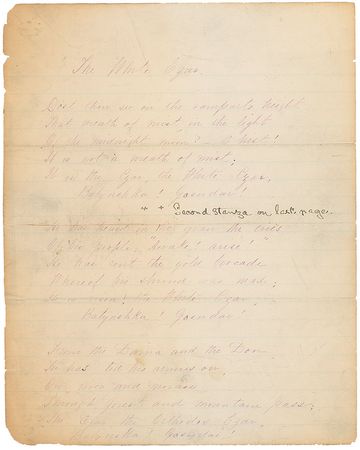 The White Czar.
Dost thou see on the rampart's height
That wreath of mist, in the light
Of the midnight moon? O hist!
It is not a wreath of mist;
It is the Czar, the White Czar,
Batyushka! Gosudar!
* + Second stanza on last page.
He has heard in the grave the cries
Of his people, "Awake! arise!"
He has rent the gold brocade
Whereof his shroud was made;
He is risen! the White Czar,
Batyushka! Gosudar!
From the Volga and the Don
He has led his armies on,
Over river and morass
Through forest and mountain pass;
The Czar, the Orthodox Czar,
Batyushka! Gosudar!